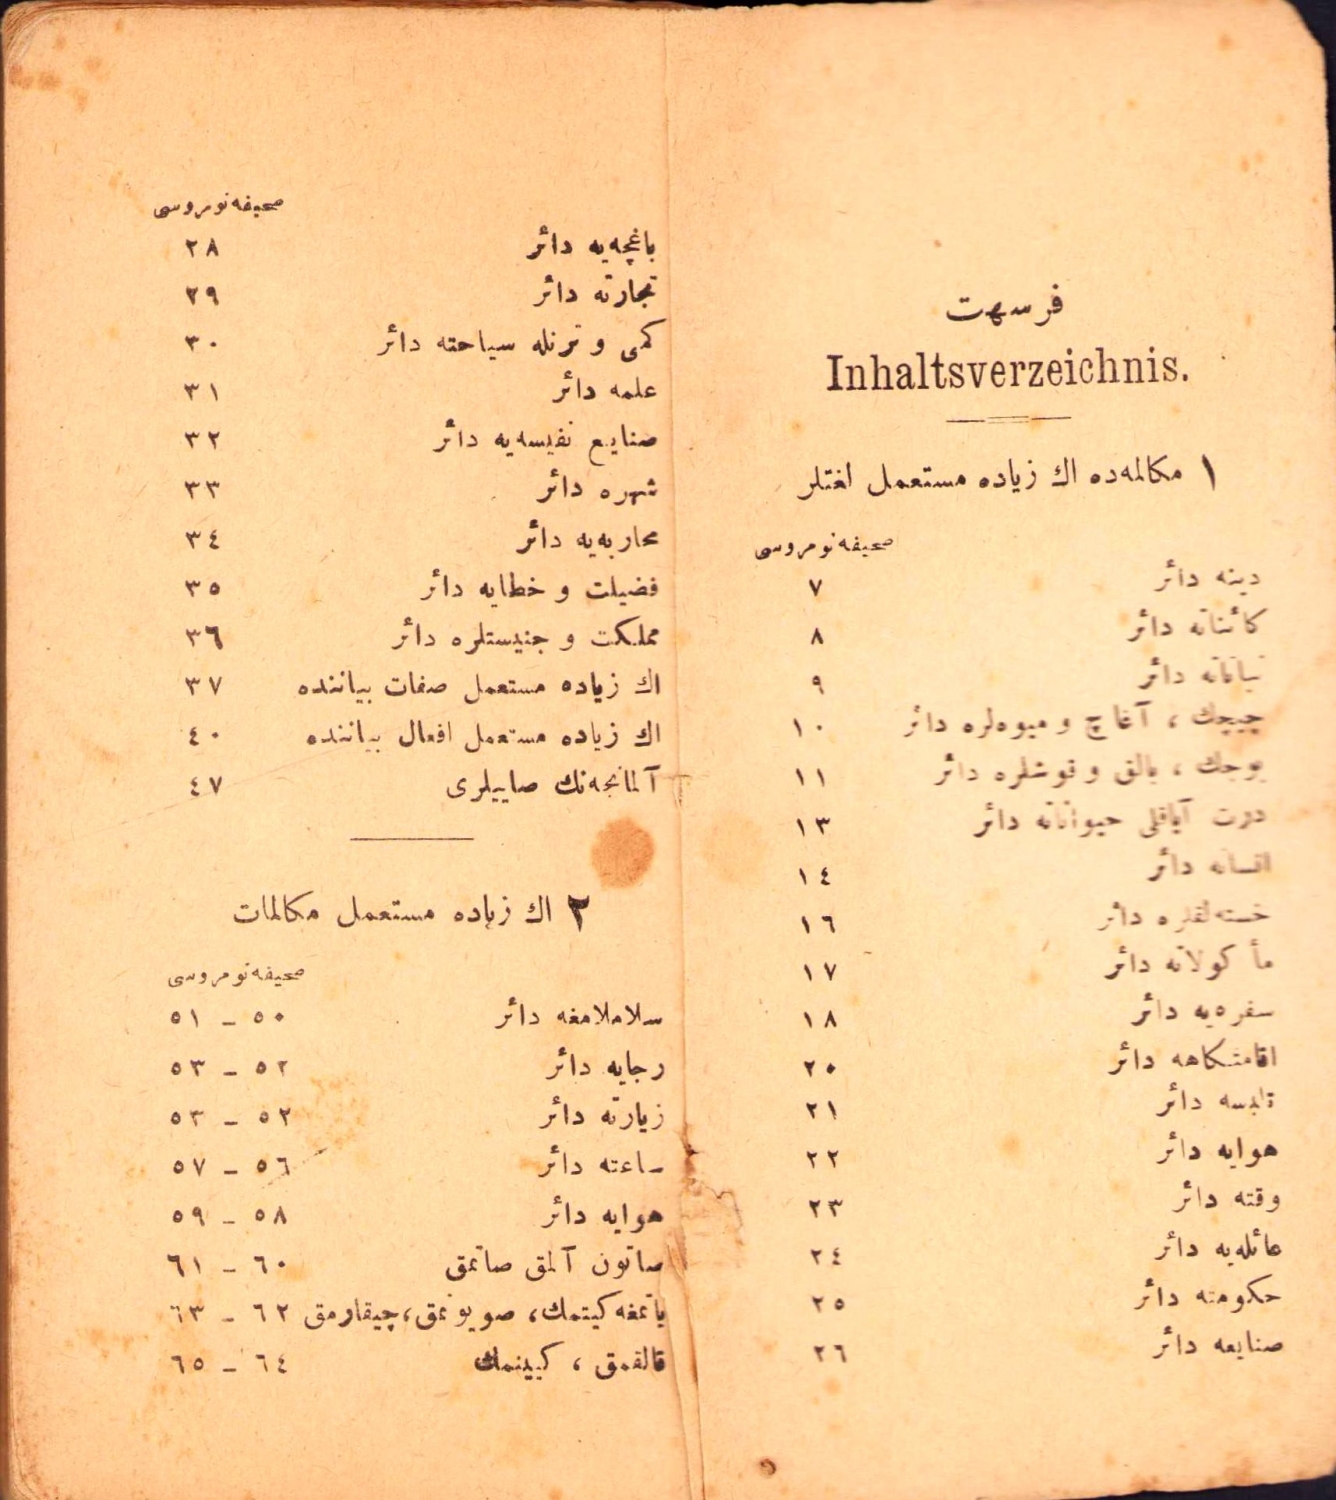 فرسهت
Inhaltsverzeichnis.
١ مكالمه‌ده اك زیاده مستعمل لغتلر
صحیفه نومروسی
دینه دائر ٧
كائناته دائر ٨
نباتاته دائر ٩
چیچك ، آغاج و میوه‌لره دائر ١٠
بوجك ، بالق و قوشلره دائر ١١
درت آیاقلی حیواناته دائر ١٣
انسانه دائر ١٤
خسته‌لقلره دائر ١٦
مأكولاته دائر ١٧
سفره‌یه دائر ١٨
اقامتكاهه دائر ٢٠
تلبسه دائر ٢١
هوایه دائر ٢٢
وقته دائر ٢٣
عائله‌یه دائر ٢٤
حكومته دائر ٢٥
صنایعه دائر ٢٦
صحیفه نومروسی
باغچه‌یه دائر ٢٨
تجارته دائر ٢٩
كمی و ترنله سیاحته دائر ٣٠
علمه دائر ٣١
صنایع نفیسه‌یه دائر ٣٢
شهره دائر ٣٣
محاربه‌یه دائر ٣٤
فضیلت و خطایه دائر ٣٥
مملكت و جنیستلره دائر ٣٦
اك زیاده مستعمل صفات بیاننده ٣٧
اك زیاده مستعمل افعال بیاننده ٤٠
آلمانجه‌نك صاییلری ٤٧
٢ اك زیاده مستعمل مكالمات
صحیفه نومروسی
سلاملامغه دائر ٥٠ – ٥١
رجایه دائر ٥٢ – ٥٣
زیارته دائر ٥٢ – ٥٣
ساعته دائر ٥٦ – ٥٧
هوایه دائر ٥٨ – ٥٩
صاتون آلمق صاتمق ٦٠ – ٦١
یاتمغه كیتمك، صویونمق، چیقارمق ٦٢ – ٦٣
قالقمق ، كیینمك ٦٤ – ٦٥